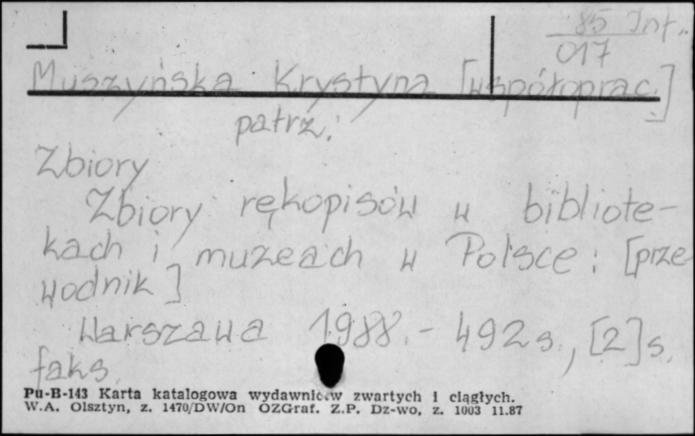 85 Inf.
017
Muszyńska Krystyna [współoprac.]
patrz:
Zbiory
Zbiory rękopisów w bibliote-
kach i muzeach w Polsce: [prze
wodnik]
Warszawa 1988.- 492 s., [2] s.
faks.
Pu-B-143 Karta katalogowa wydawnictw zwartych i ciągłych.
W.A. Olsztyn, z. 1470/DW/On OZGraf. Z.P. Dz-wo, z. 1003 11.87